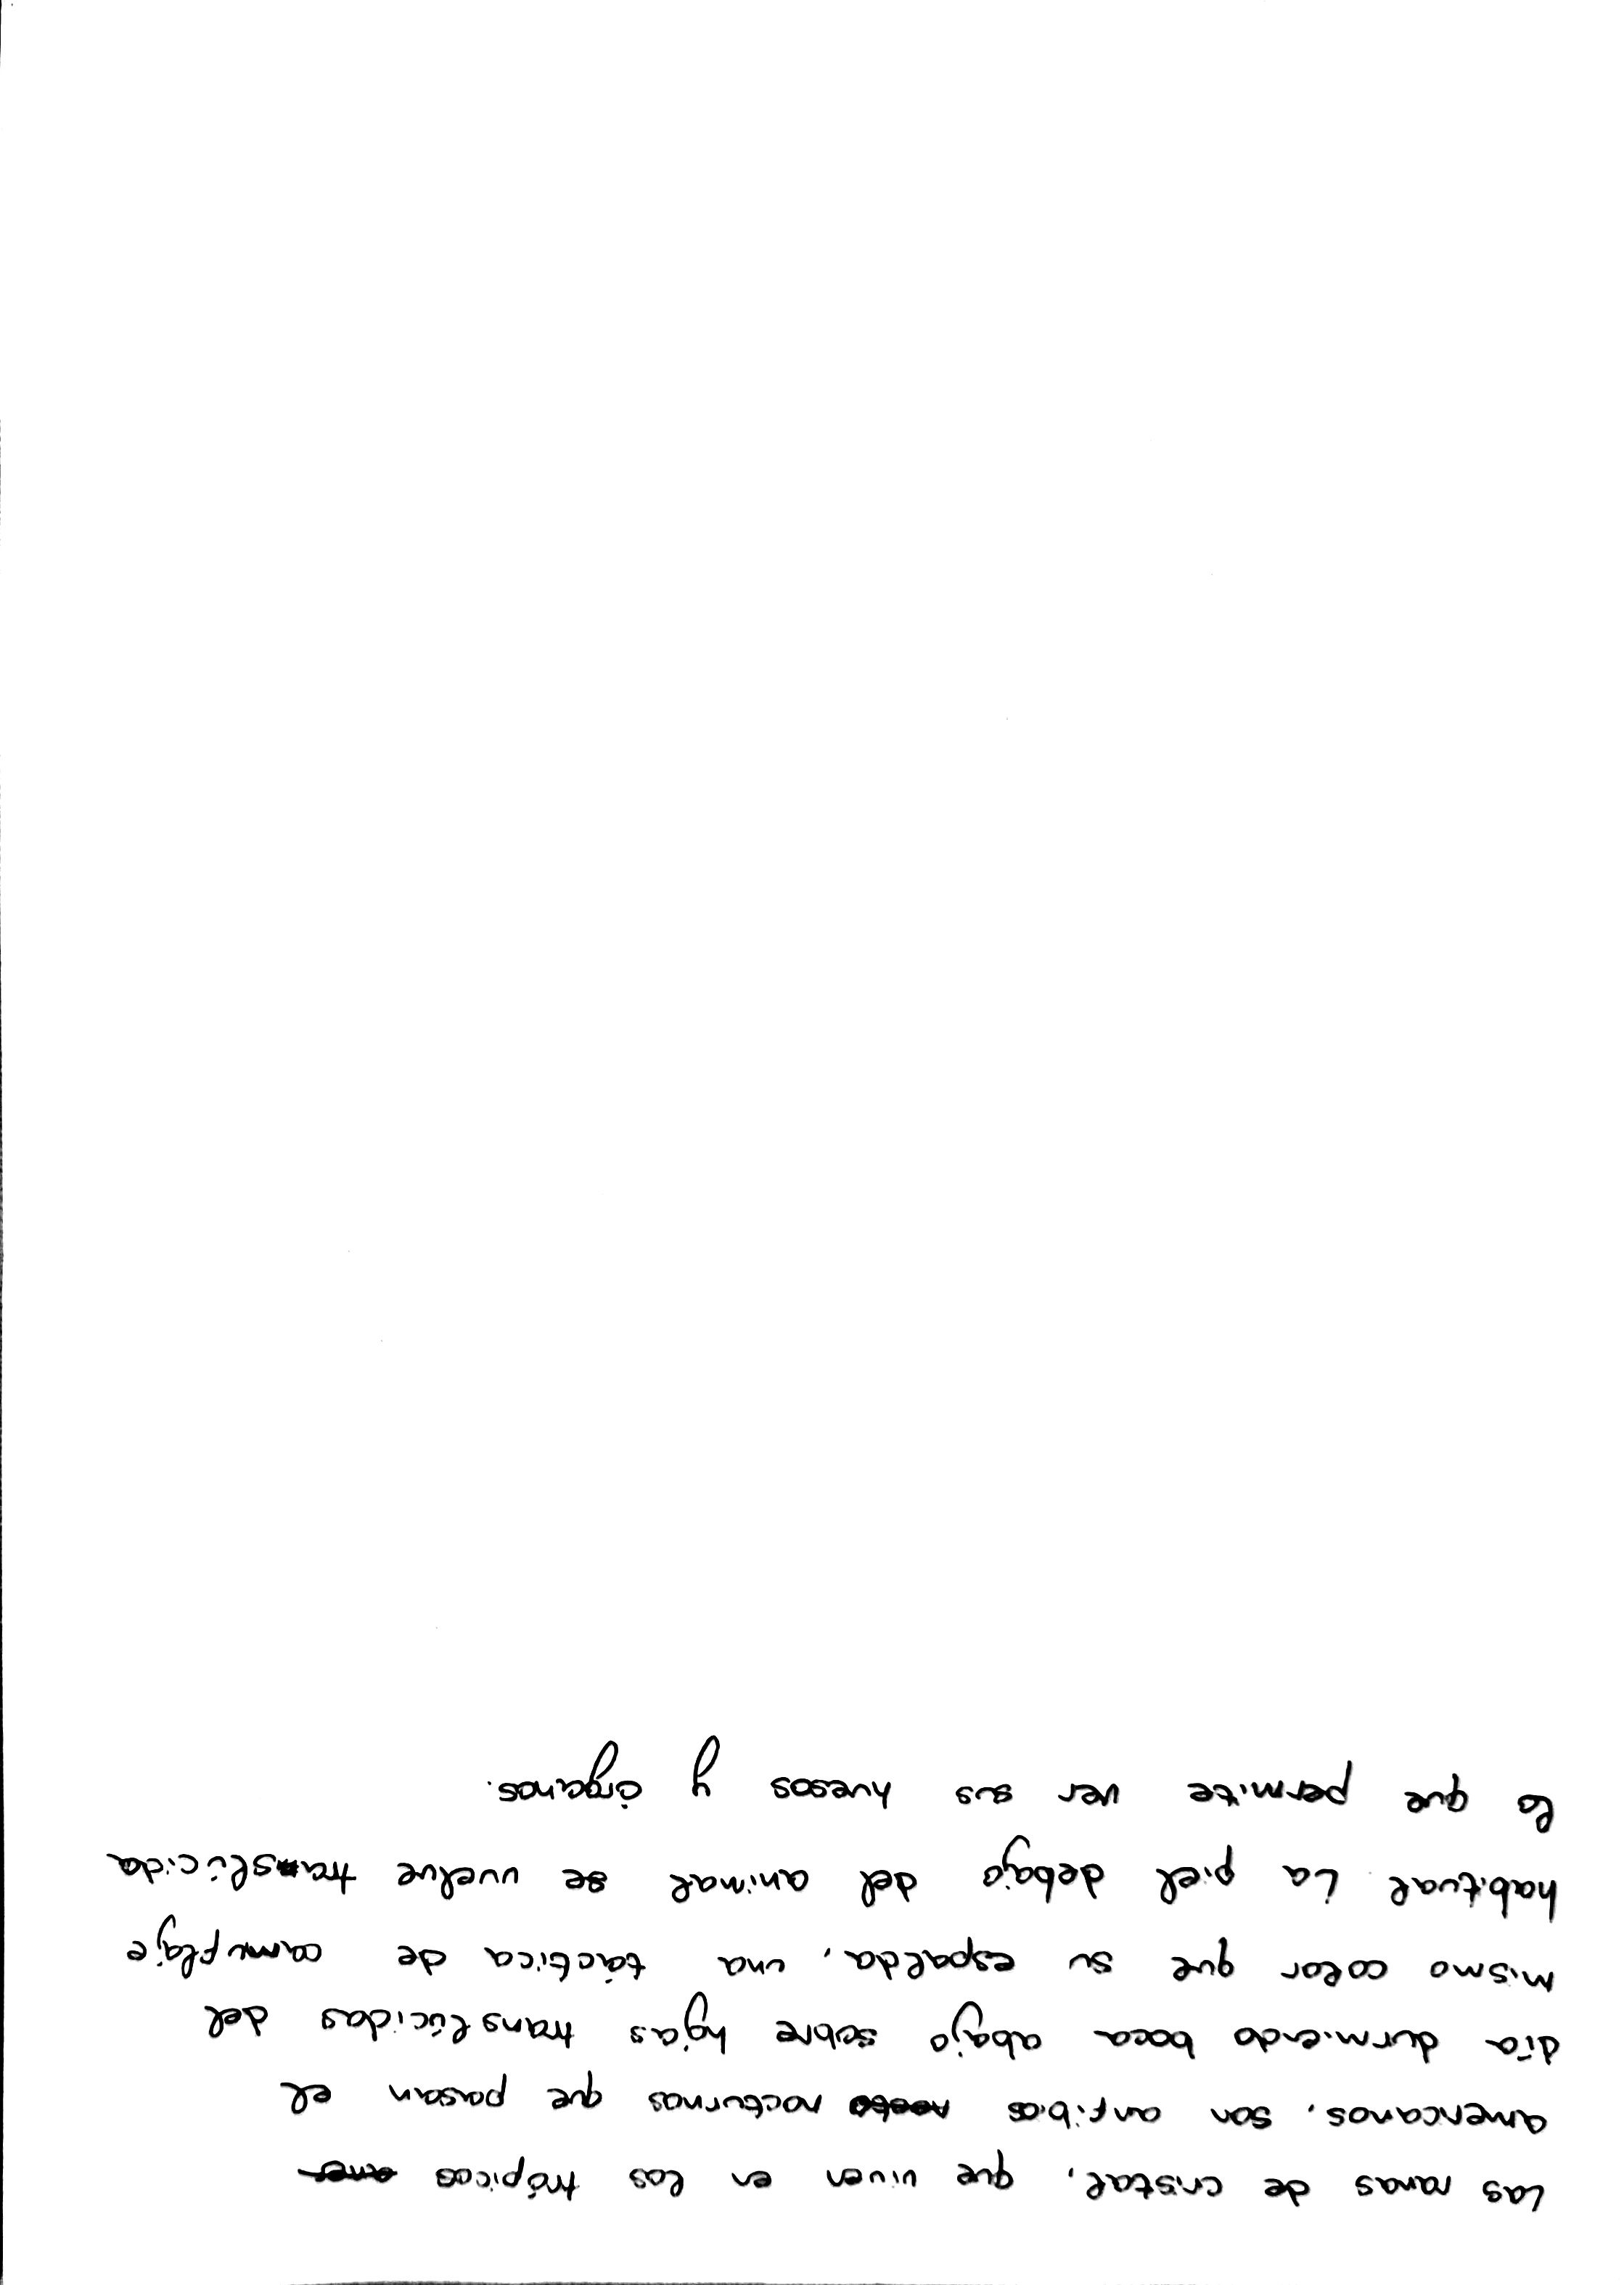 Las ranas de cristal, que viven en los trópicos
americanos, son anfibios nocturnos que pasan el
día durmiendo boca abajo sobre hojas translúcidas del
mismo color que su espalda, una táctica de camuflaje
habitual. La piel debajo del animal se vuelve translúcida
lo que permite ver sus huesos y órganos.